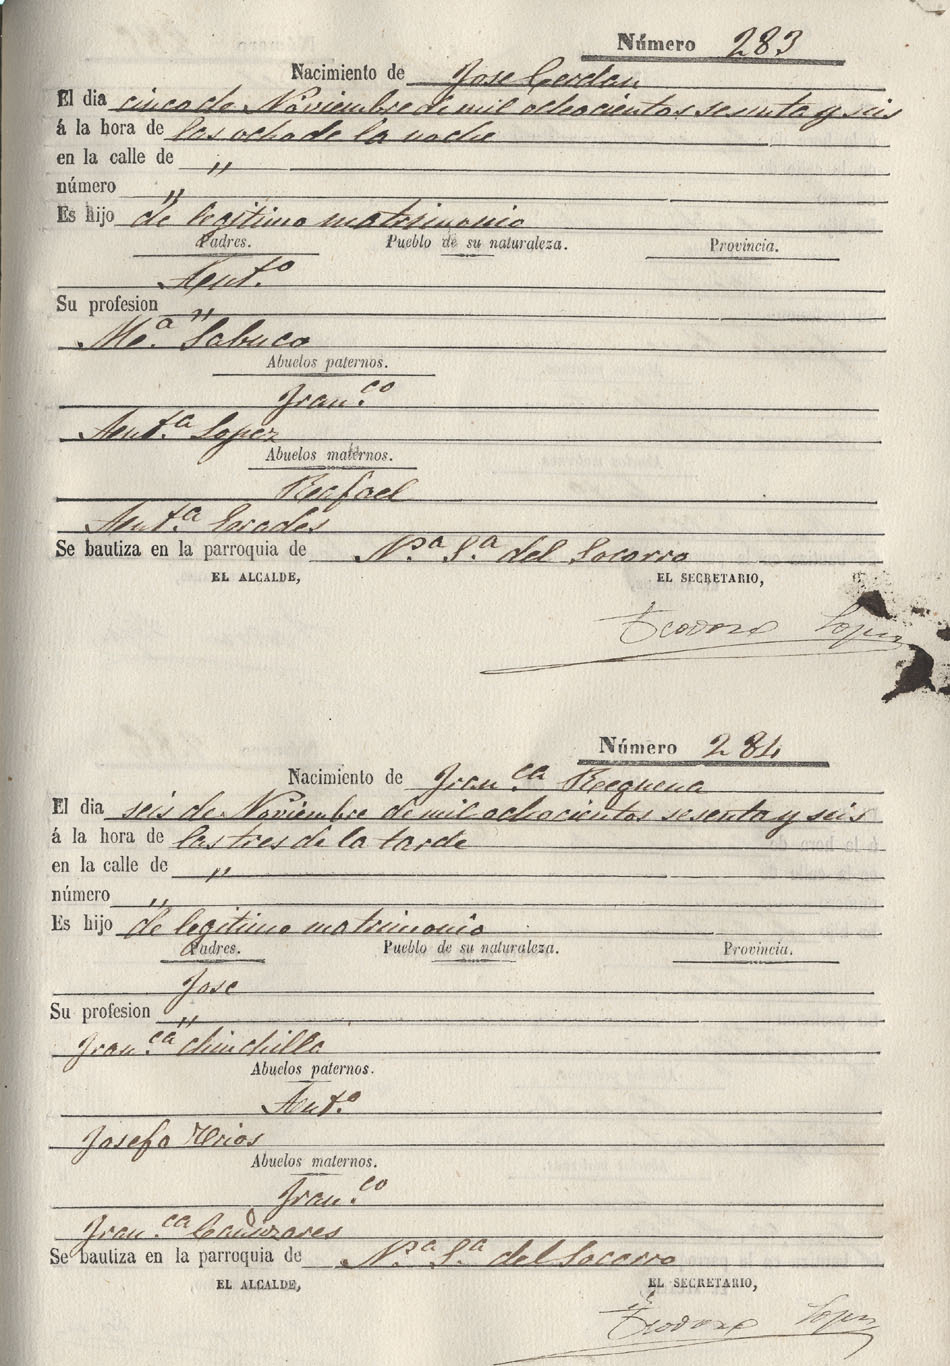 Número 283
Nacimiento de Jose Cerdan
El dia cinco de Noviembre de mil ochocientos sesenta y seis
á la hora de las ocho de la noche
en la calle de "
número "
Es hijo de legitimo matrimonio
Padres. Pueblo de su naturaleza. Provincia.
Ant.o
Su profesion "
M.a Sabuco
Abuelos paternos.
Fran.co
Ant.a Lopez
Abuelos maternos.
Rafael
Ant.a
Se bautiza en la parroquia de N.a S.a del Socorro
EL ALCALDE, EL SECRETARIO,
Teodoro Lopez
Número 284
Nacimiento de Fran.ca Requena
El dia seis de Noviembre de mil ochocientos sesenta y seis
á la hora de las tres de la tarde
en la calle de "
número "
Es hijo de legitimo matrimonio
Padres. Pueblo de su naturaleza. Provincia.
Jose
Su profesion "
Fran.ca Chinchilla
Abuelos paternos.
Ant.o
Josefa Rios
Abuelos maternos.
Fran.co
Fran.ca Cañizares
Se bautiza en la parroquia de N.a S.a del Socorro
EL ALCALDE, EL SECRETARIO,
Teodoro Lopez